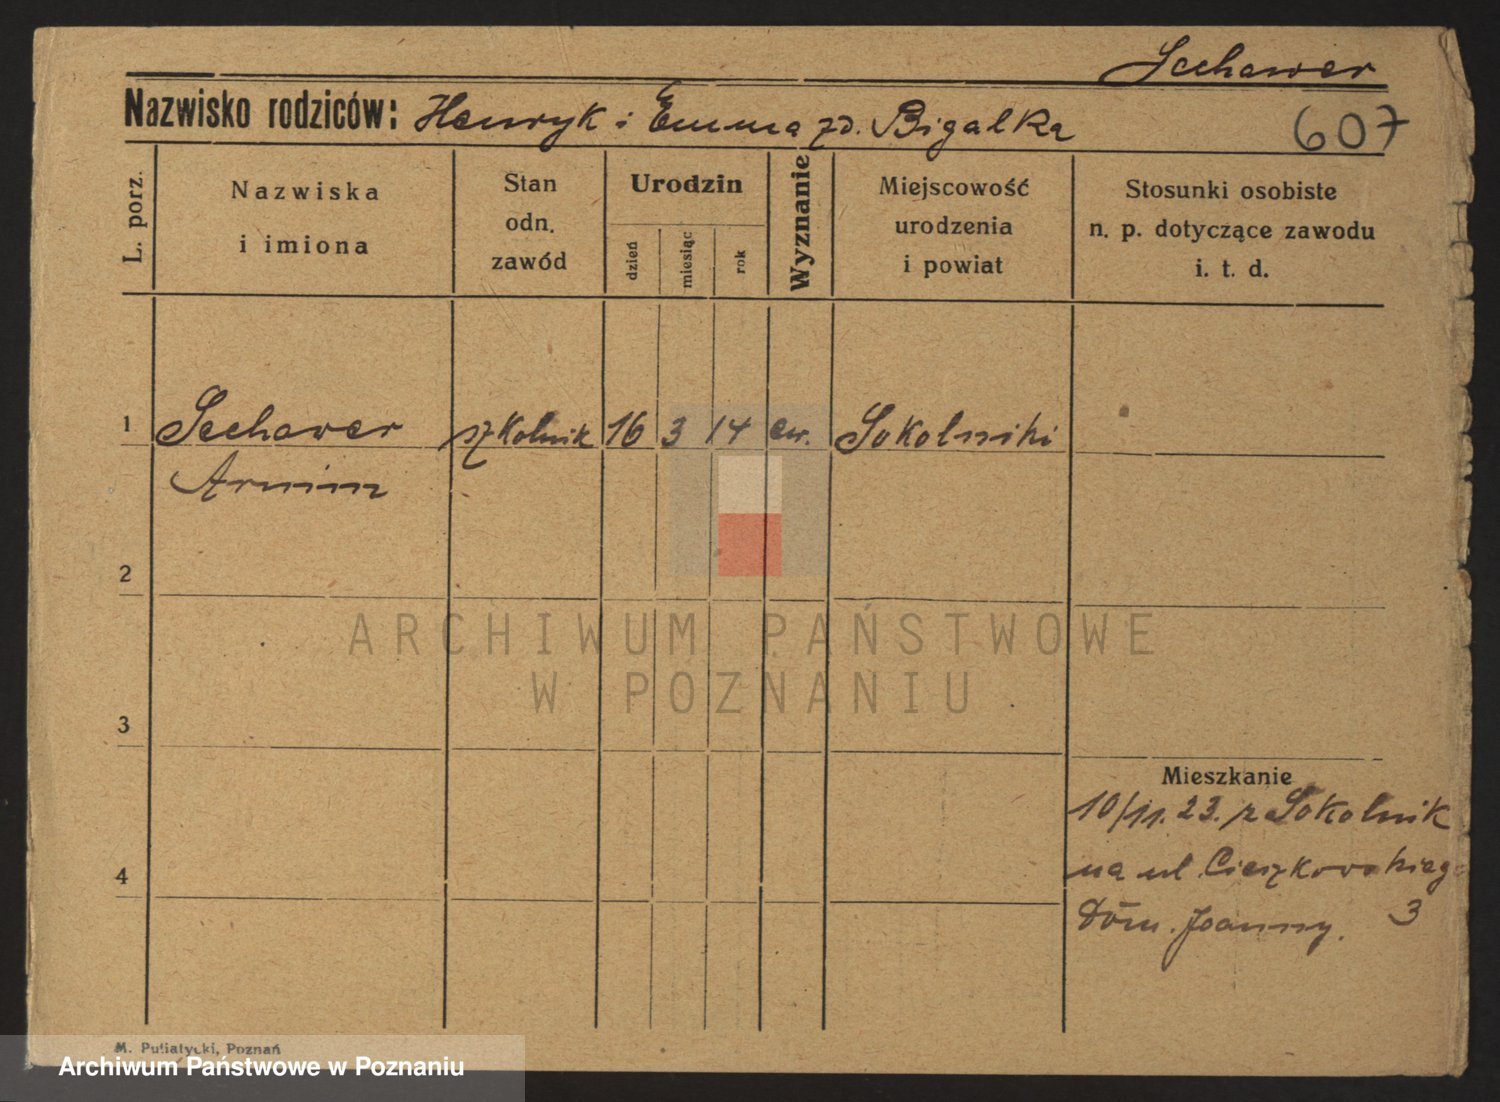 Sechawer
Nazwisko rodziców: Henryk i Emma zd. Bigalka
607
L. porz.
Nazwiska
i imiona
Stan
odn.
zawód
Urodzin
dzień
miesiąc
rok
Wyznanie
Miejscowość
urodzenia
i powiat
Stosunki osobiste
n. p. dotyczące zawodu
i. t. d.
1 Sechawer szkolnik 16 3 14 ew. Sokolniki
Armin
2
ARCHIWUM PAŃSTWOWE
W POZNANIU
3
Mieszkanie
10/11. 23. z Sokolnik
na ul. Cieszkowskiego
4
Dom. Joanny. 3
M. Putiatycki, Poznań
Archiwum Państwowe w Poznaniu